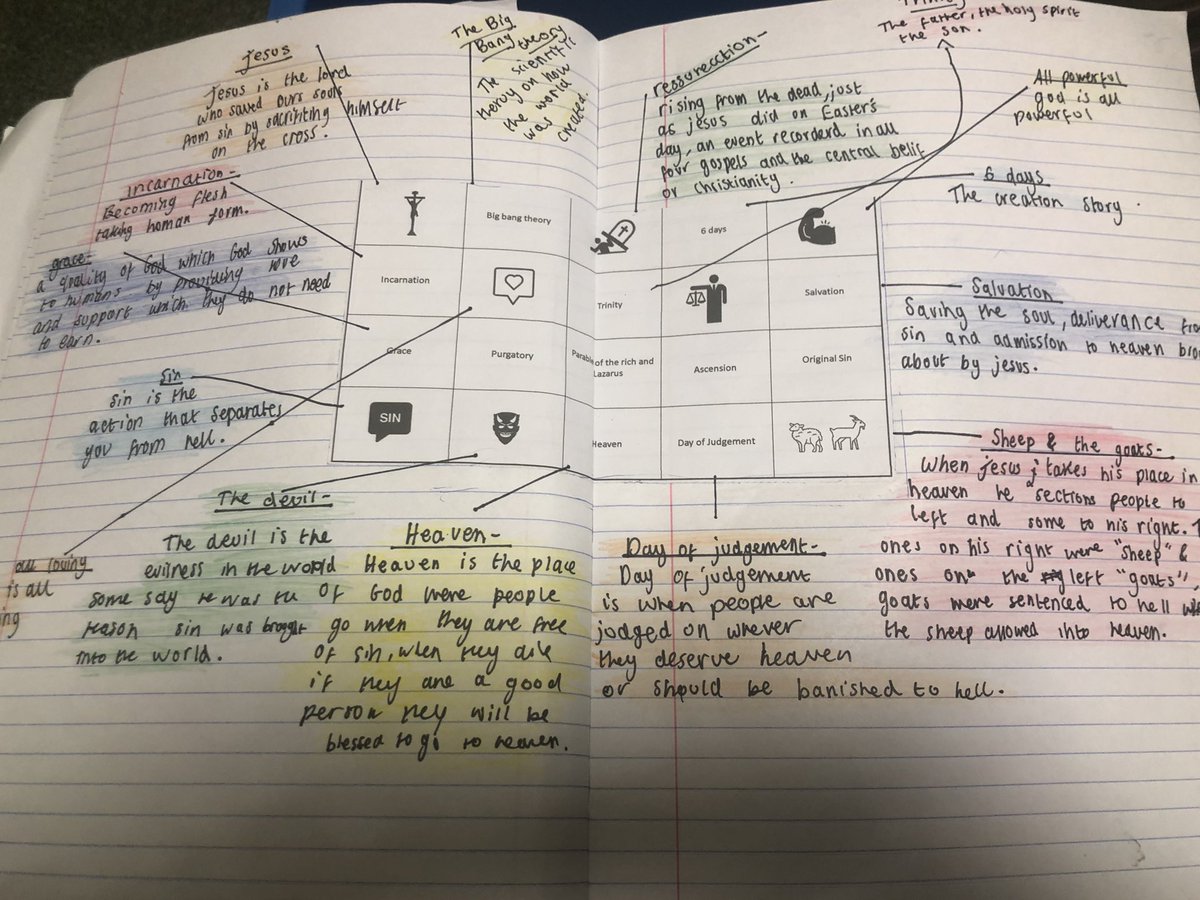 Jesus
Jesus is the lord
who saved ours souls
from sin by sacrifting himself
on the cross.
The Big
Bang theory
The scientific
theroy on how
the world
was
created.
ressurecction-
rising from the dead, just
as jesus did on Easter's
day, an event recorderd in all
four gospels and the central belif
or christianity.
The Father, the holy spirit
the son.
All powerful
god is all
powerful
6 days
The creation story.
Incarnation-
Becoming flesh
taking human form.
grace-
a quality of God which God shows
to humans by providing love
and support which they do not need
to earn.
Sin
Sin is the
action that separates
you from hell.
Big bang theory
6 days
Incarnation
Trinity
Salvation
Grace
Purgatory
Parable of the rich and
Lazarus
Ascension
Original Sin
SIN
Heaven
Day of Judgement
Salvation
Saving the soul, deliverance
sin and admission to heaven
about by jesus.
Sheep & the goats-
When jesus takes his place in
heaven he sections people to
left and some to his right.
ones on his right were "sheep" &
ones on the left "goats",
goats were sentenced to hell
the sheep allowed into heaven.
all loving
is all
The devil-
The devil is the
evilness in the world
some say he was the
reason sin was brought
into the world.
Heaven-
Heaven is the place
of God were people
go when they are free
of sin, when they die
if they are a good
person they will be
blessed to go to heaven.
Day of judgement-
Day of judgement
is when people are
judged on whever
they deserve heaven
or should be banished to hell.